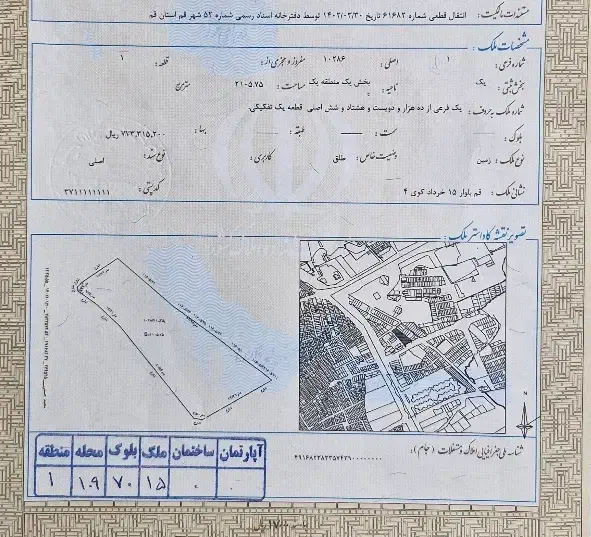 مستندات مالکیت: انتقال قطعی شماره ۶۱۶۸۲ تاریخ ۱۴۰۲/۰۲/۳۰ توسط دفترخانه اسناد رسمی شماره ۵۲ شهر قم استان قم
مشخصات ملک:
شماره فرعی: ۱ اصلی: ۱۰۲۸۶ مفروز و مجزی از: قطعه: ۱
بخش ثبتی: یک ناحیه: بخش یک منطقه یک مساحت: ۲۱۰۵.۷۵ مترمربع
شماره ملک به حروف: یک فرعی از ده هزار و دویست و هشتاد و شش اصلی قطعه یک تفکیکی
بلوک: سمت: طبقه: بها: ۷۷۳,۳۱۵,۲۰۰ ریال
نوع ملک: زمین وضعیت خاص: طلق کاربری: نوع سند: اصلی
نشانی ملک: قم بلوار ۱۵ خرداد کوی ۴ کد پستی: ۳۷۱۱۱۱۱۱۱۱
تصویر نقشه کاداستر ملک:
N
شناسه ملی جغرافیایی املاک و مستغلات (جام):
آپارتمان ساختمان ملک بلوک محله منطقه
۰ ۰ ۱۵ ۷۰ ۱۰۹ ۱